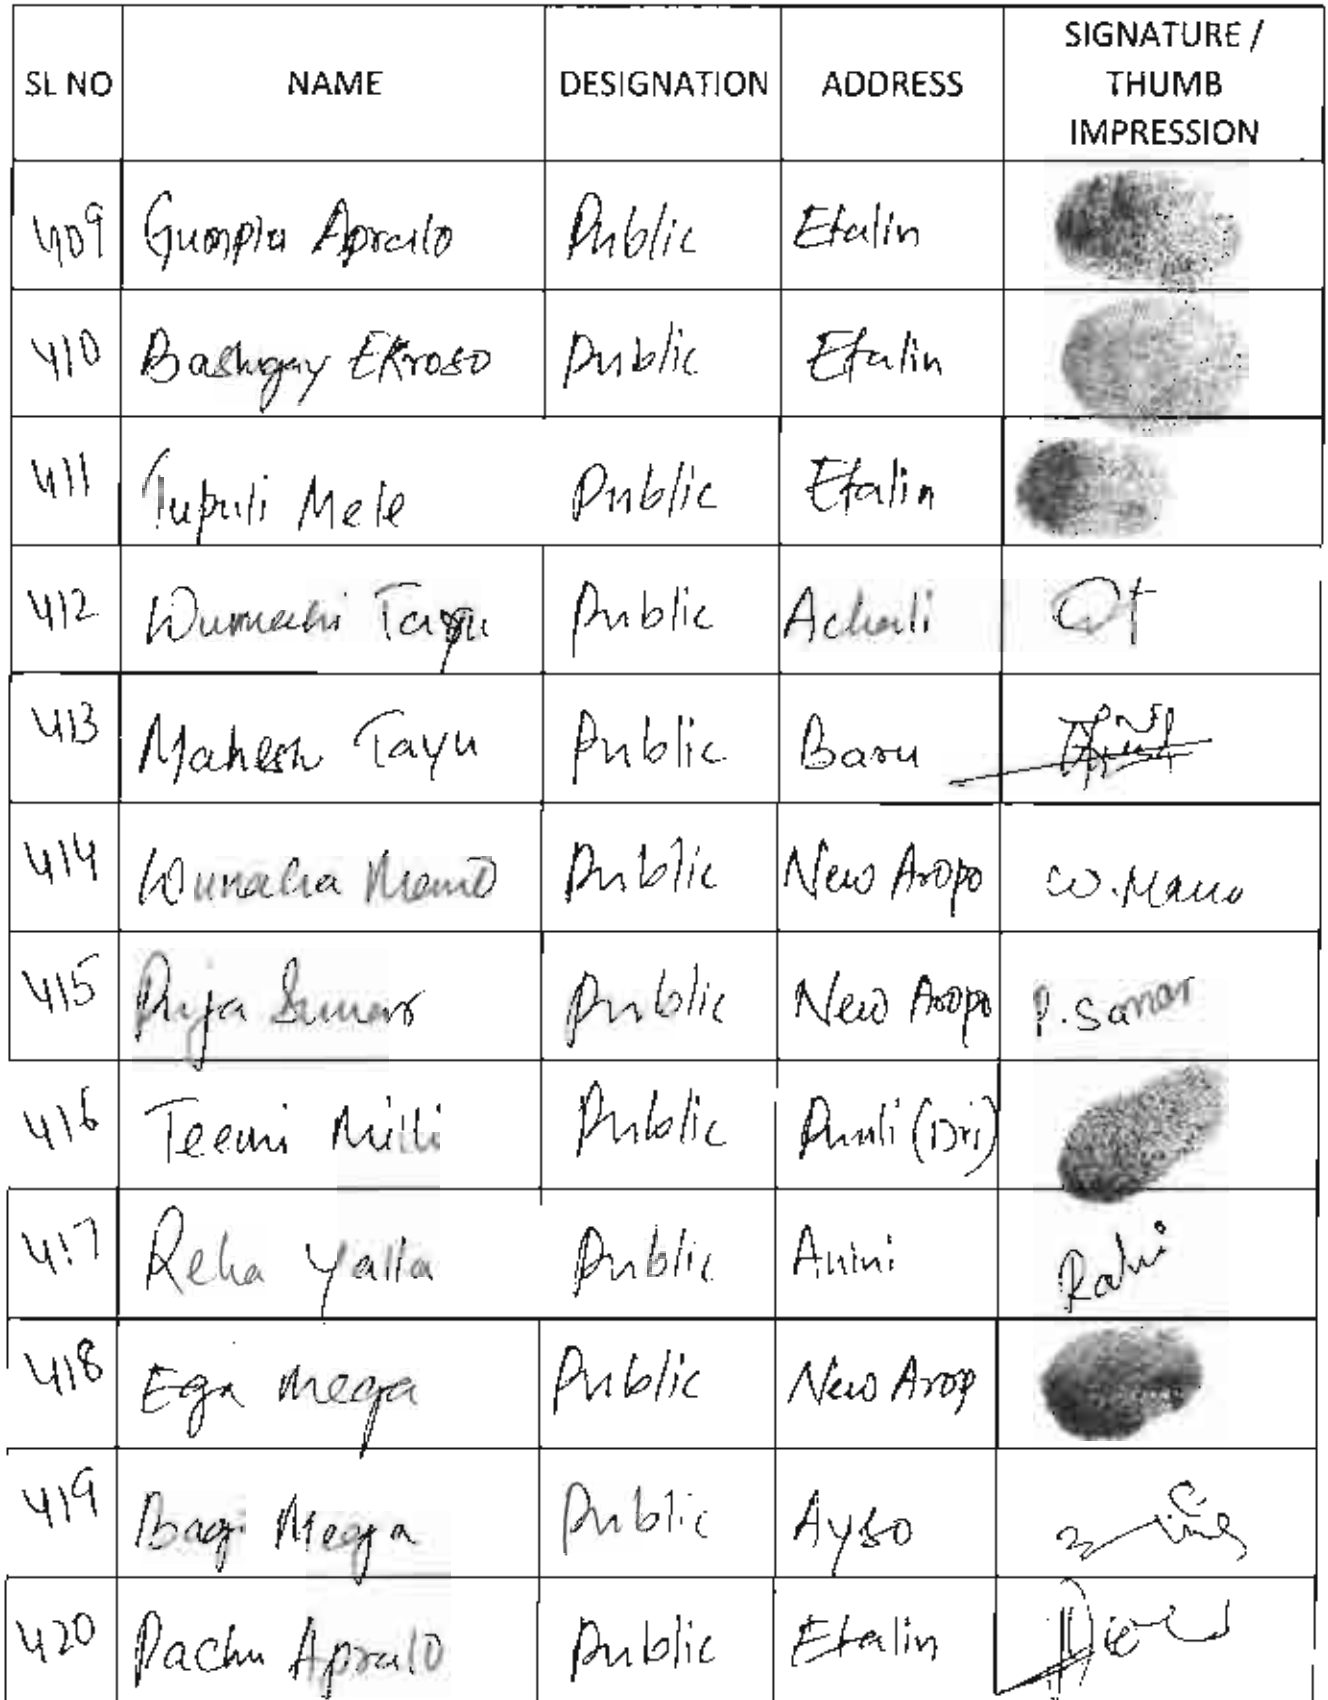 SL NO NAME DESIGNATION ADDRESS SIGNATURE / THUMB IMPRESSION
409 Gumpla Apralo Public Etalin
410 Bashgay Ekroso Public Etalin
411 Tupuli Mele Public Etalin
412 Wumachi Tayu Public Achali
413 Mahesh Tayu Public Baru
414 Public New Aropo W. Mano
415 Puja Public New Aropo P. Sanar
416 Teemi Milli Public (Dri)
417 Reha Yalla Public Anini Rahi
418 Ega Mega Public New Arop
419 Bagi Mega Public Ayso
420 Pachu Apralo Public Etalin